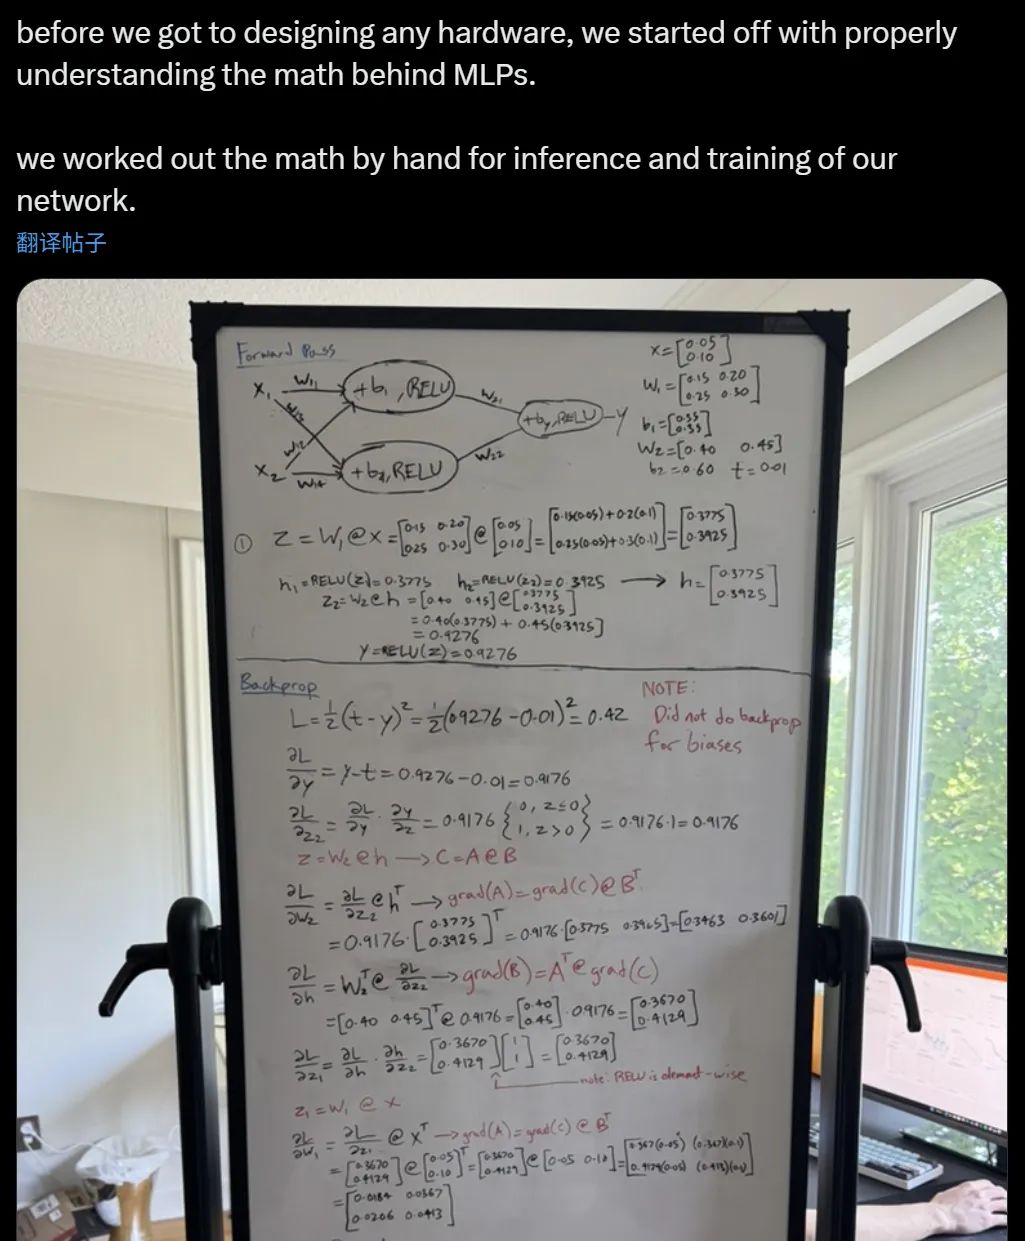 before we got to designing any hardware, we started off with properly
understanding the math behind MLPs.
we worked out the math by hand for inference and training of our
network.
翻译帖子
Forward Pass
x₁ w₁₁ +b₁, RELU w₂₁
w₁₃
w₁₂
+by, RELU — Y
x₂ w₁₄ +b₂, RELU w₂₂
x = [0.05 0.10]
W₁ = [0.15 0.20 0.25 0.30]
b₁ = [0.35 0.35]
W₂ = [0.40 0.45]
b₂ = 0.60 t = 0.01
① Z = W₁ @ x = [0.15 0.20 0.25 0.30] @ [0.05 0.10] = [0.15(0.05) + 0.2(0.1) 0.25(0.05) + 0.3(0.1)] = [0.3775 0.3925]
h₁ = RELU(Z) = 0.3775 h₂ = RELU(z₂) = 0.3925 → h = [0.3775 0.3925]
Z₂ = W₂ @ h = [0.40 0.45] @ [0.3775 0.3925]
= 0.40(0.3775) + 0.45(0.3925)
= 0.9276
Y = RELU(Z) = 0.9276
Backprop
NOTE:
Did not do backprop
for biases
L = ½(t - y)² = ½(0.9276 - 0.01)² = 0.42
∂L/∂y = y - t = 0.9276 - 0.01 = 0.9176
∂L/∂z₂ = ∂L/∂y · ∂y/∂z = 0.9176 {0, z≤0 1, z>0} = 0.9176·1 = 0.9176
z = W₂ @ h → C = A @ B
∂L/∂W₂ = ∂L/∂z₂ @ hᵀ → grad(A) = grad(C) @ Bᵀ
= 0.9176 · [0.3775 0.3925]ᵀ = 0.9176 · [0.3775 0.3925] = [0.3463 0.3601]
∂L/∂h = W₂ᵀ @ ∂L/∂z₂ → grad(B) = Aᵀ @ grad(C)
= [0.40 0.45]ᵀ @ 0.9176 = [0.40 0.45] · 0.9176 = [0.3670 0.4129]
∂L/∂z₁ = ∂L/∂h · ∂h/∂z₂ = [0.3670 0.4129] [1 1] = [0.3670 0.4129]
note: RELU is element-wise
z₁ = W₁ @ x
∂L/∂W₁ = ∂L/∂z₁ @ xᵀ → grad(A) = grad(C) @ Bᵀ
= [0.3670 0.4129] @ [0.05 0.10]ᵀ = [0.3670 0.4129] @ [0.05 0.10] = [0.367(0.05) (0.367)(0.1) 0.4129(0.05) (0.413)(0.1)]
= [0.0184 0.0367 0.0206 0.0413]